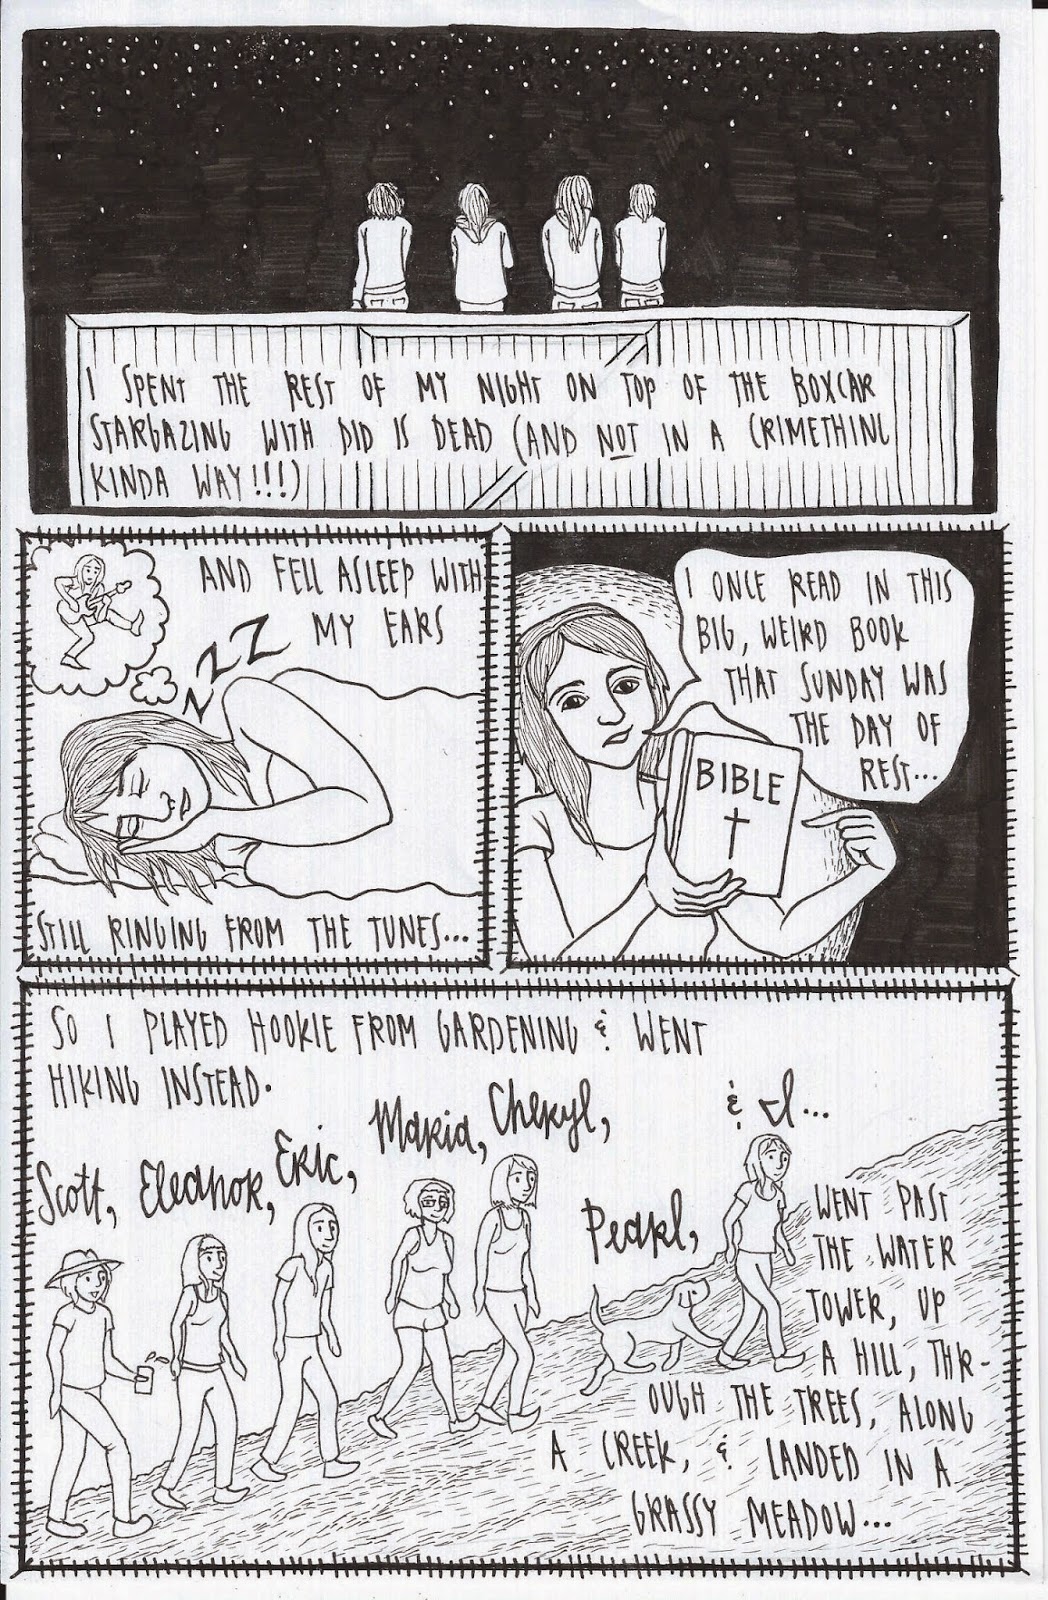 I SPENT THE REST OF MY NIGHT ON TOP OF THE BOXCAR
STARGAZING WITH DID IS DEAD (AND NOT IN A CRIMETHINC
KINDA WAY!!!)
AND FELL ASLEEP WITH
MY EARS
ZZZ
STILL RINGING FROM THE TUNES...
I ONCE READ IN THIS
BIG, WEIRD BOOK
THAT SUNDAY WAS
THE DAY OF
REST...
BIBLE
SO I PLAYED HOOKIE FROM GARDENING & WENT
HIKING INSTEAD.
Scott, Eleanor, Eric, Maria, Cheryl,
Pearl,
& I...
WENT PAST
THE WATER
TOWER, UP
A HILL, THR-
OUGH THE TREES, ALONG
A CREEK, & LANDED IN A
GRASSY MEADOW...